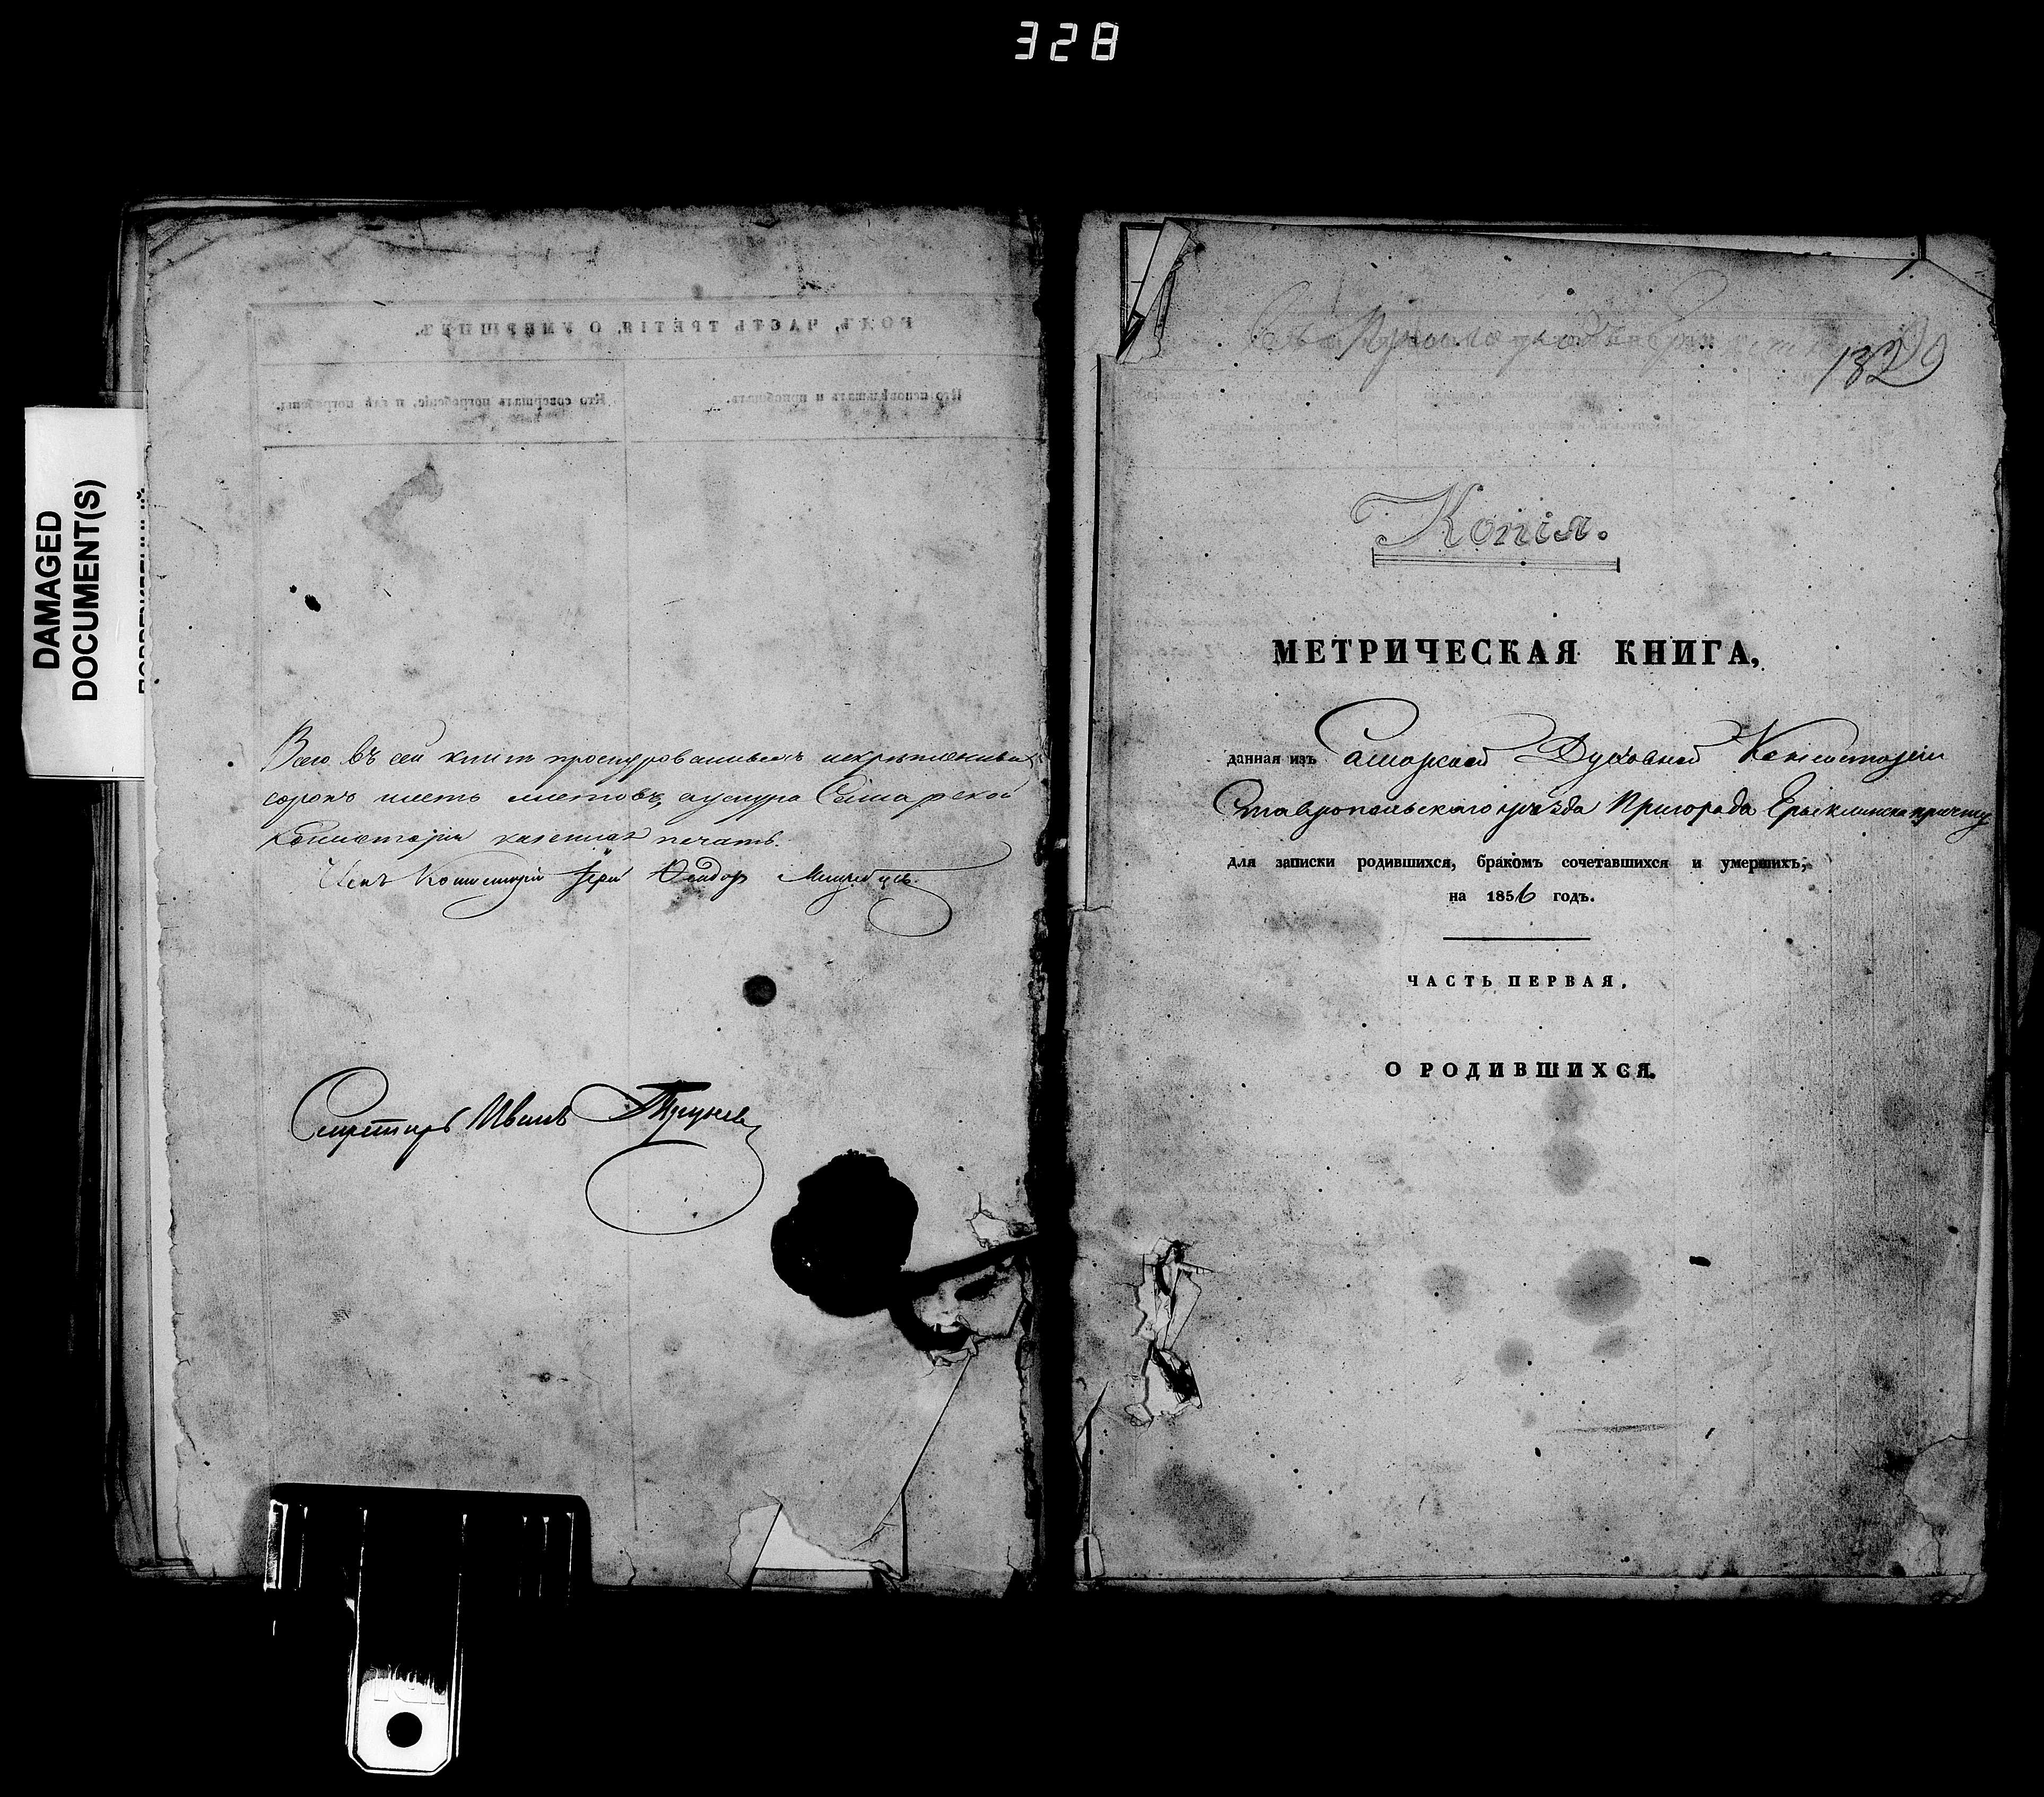 328
DAMAGED
DOCUMENT(S)
ГОДЪ, ЧАСТЬ ТРЕТІЯ, О УМЕРШИХЪ.
Кто исповѣдывалъ и пріобщалъ.
Кто совершалъ погребеніе, и гдѣ погребены.
Всего въ сей книгѣ
сорокъ шесть листовъ, Самарской
Консисторіи казенная печать.
Членъ Консисторіи Іерей Ѳеодоръ
Секретарь Иванъ
Въ
1329
Копія.
МЕТРИЧЕСКАЯ КНИГА,
данная изъ Самарской Духовной Консисторіи
Ставропольскаго уѣзда Пригорода Ерыклинска причту
для записки родившихся, бракомъ сочетавшихся и умершихъ,
на 1856 годъ.
ЧАСТЬ ПЕРВАЯ.
О РОДИВШИХСЯ.